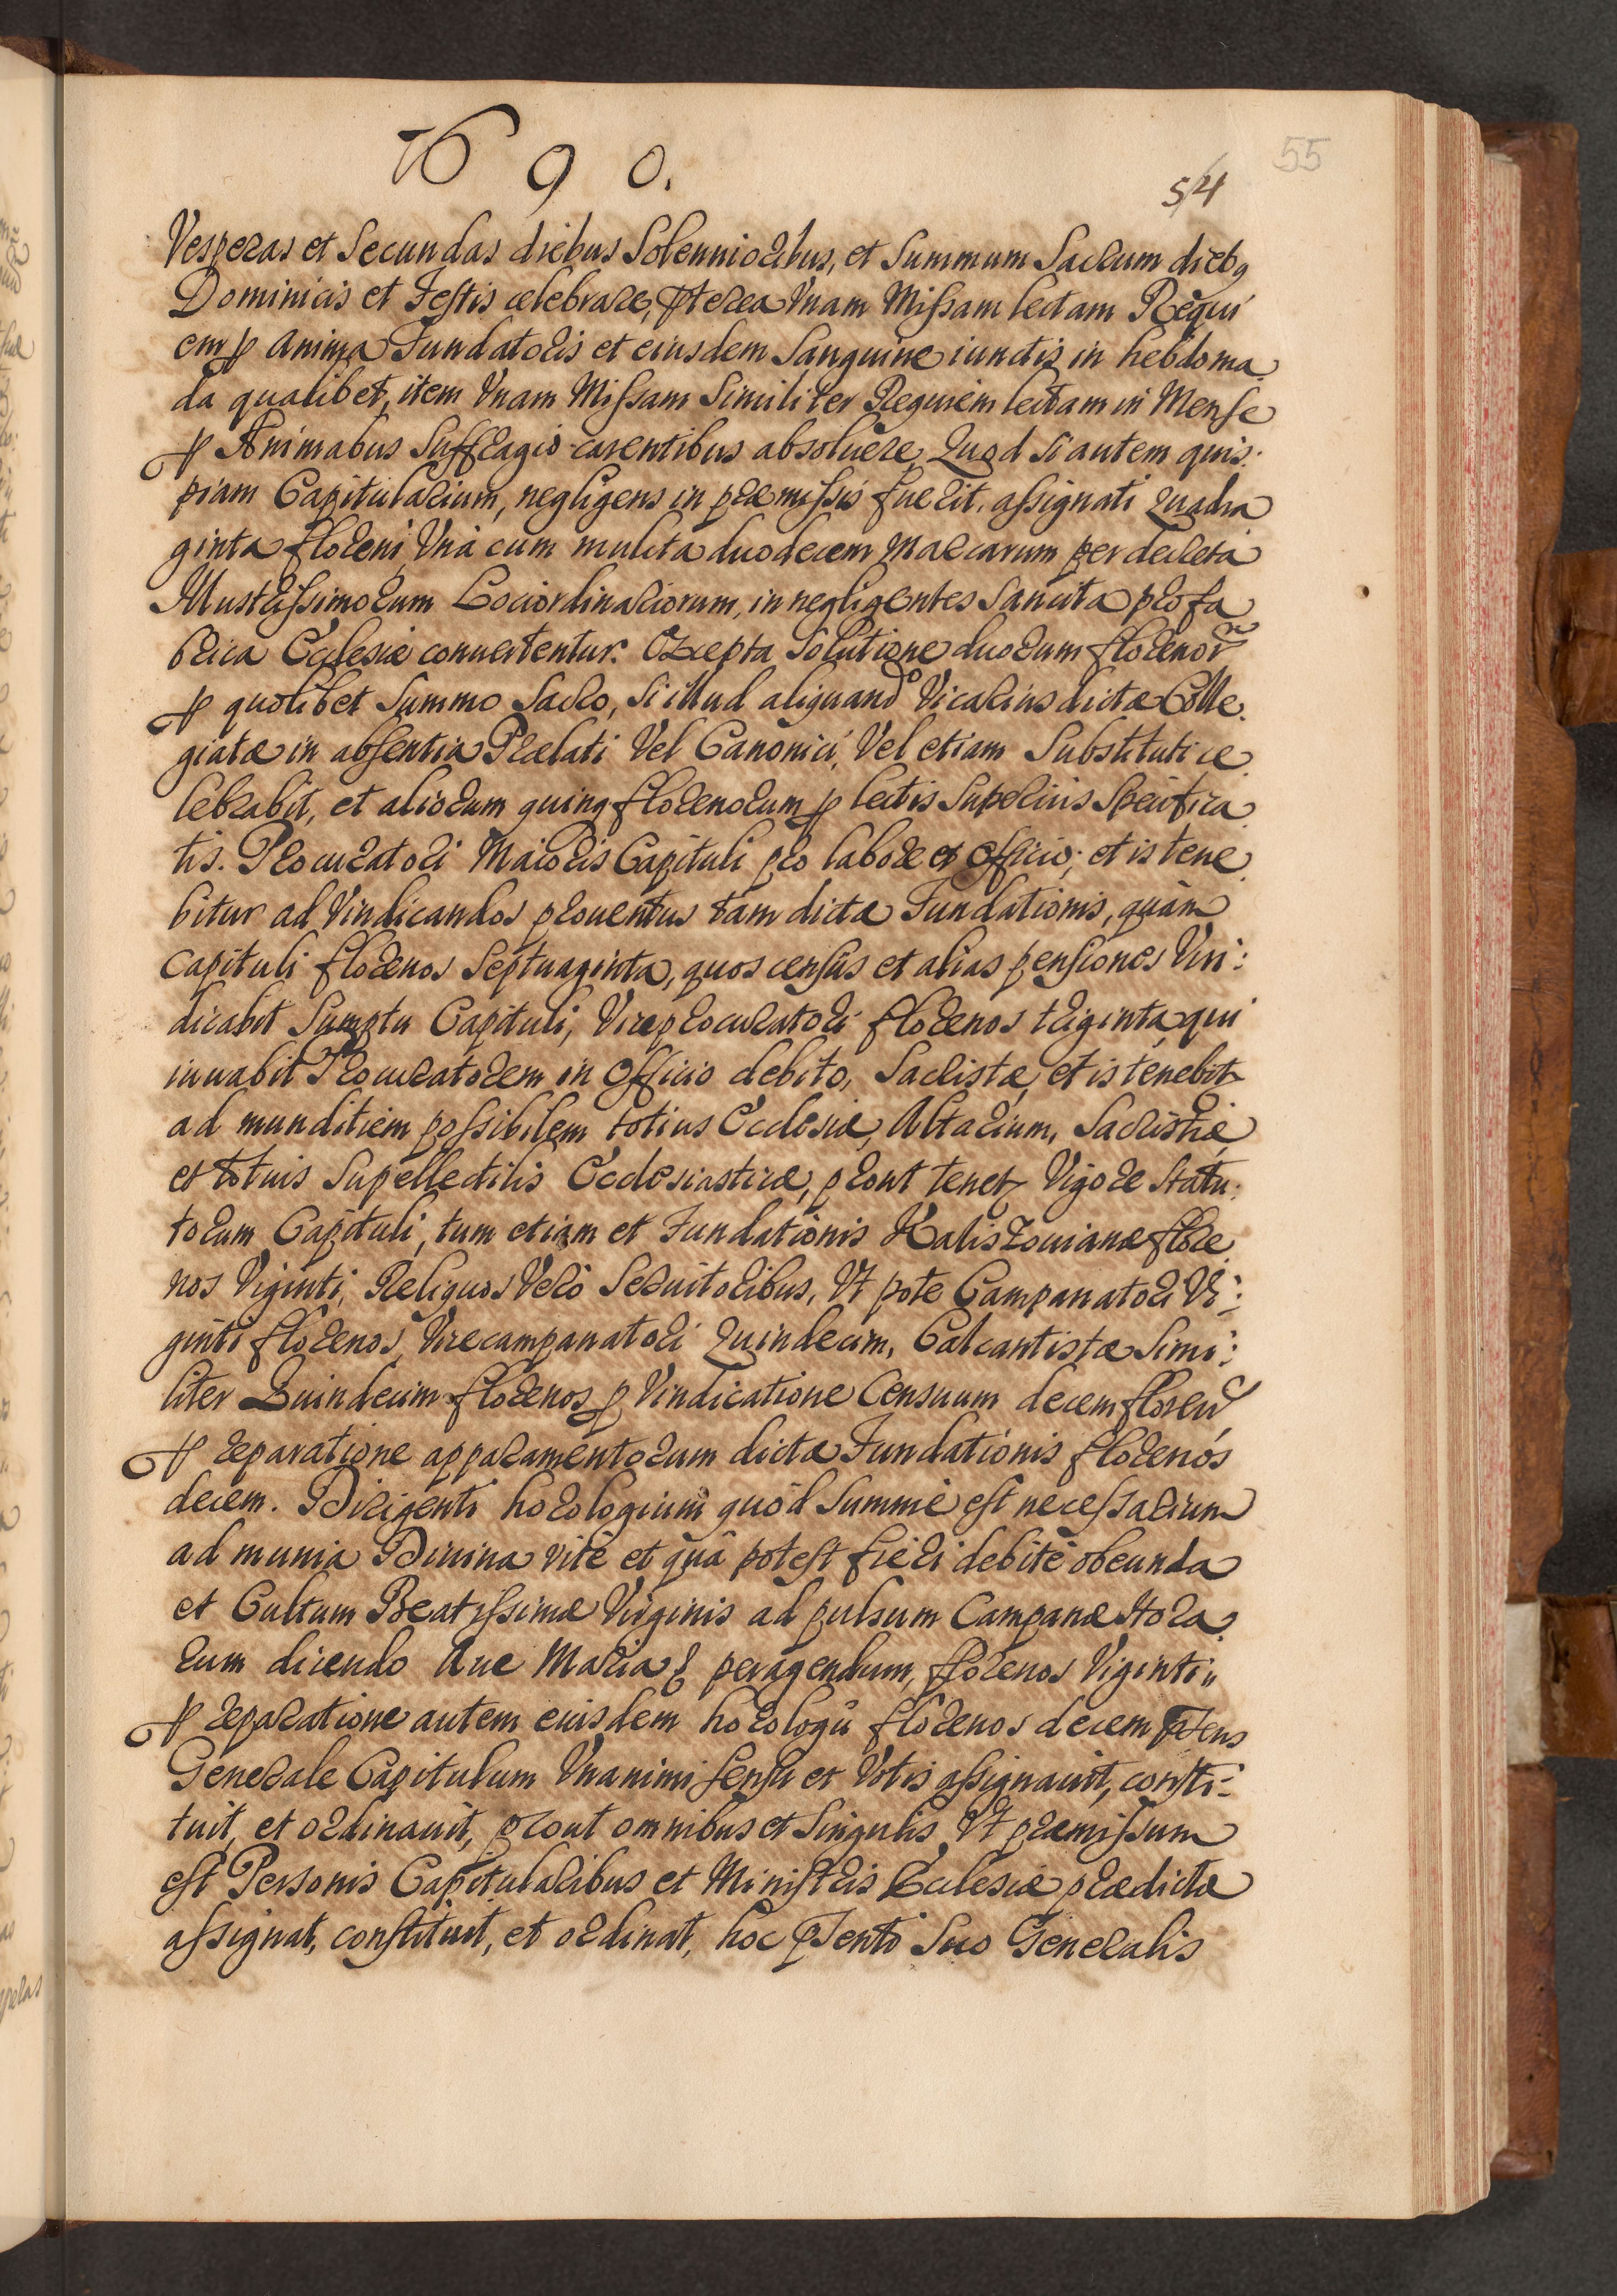 1690.
54
55
Vesperas et Secundas diebus Solennioribus, et Summum Sacrum dieb9
Dominicis et Festis celebrare, ꝓterea Vnam Missam lectam Requi
em ꝓ anima Fundatoris et eiusdem Sanguine iunctis in hebdoma
da qualibet, item Vnam Missam Similiter Requiem lectam in Mense
ꝓ Animabus Suffragio carentibus absoluere, Quod si autem quis:
piam Capitularium, negligens in præmissis fuerit, assignati quadra
ginta floreni Vnà cum mulcta duodecem Marcarum per decreta
Illustrissimorum Lociordinariorum, in negligentes Sancita pro fa
brica Ecclesiæ conuertentur. Excepta Solutione duorum florenor
ꝓ quolibet Summo Sacro, si illud aliquando Vicarius dictæ Colle
giatæ in absentia Prælati Vel Canonici, Vel etiam Substituti ce
lebrabit, et aliorum quinq florenorum ꝓ lectis Superius Specifica
tis. Procuratori Maioris Capituli pro labore et officio; et is tene
bitur ad Vindicandos prouentus tam dictæ Fundationis, quàm
Capituli florenos Septuaginta, quos census et alias pensiones Vin:
dicabit Sumptu Capituli, Viceprocuratori florenos triginta, qui
iuuabit Procuratorem in officio debito, Sacristæ, et is tenebit
ad munditiem possibilem totius Ecclesiæ, Altarium, Sacristiæ
et totius Supellectilis Ecclesiasticæ, prout tenet Vigore Statu:
torum Capituli, tum etiam et Fundationis Kaliszouianæ flore
nos Viginti, Reliquos Verò Seruitoribus, Vt pote Campanatori Vi:
ginti florenos, Vicecampanatori quindecim, Calcantistæ Simi:
liter Quindecim florenos, ꝓ Vindicatione Censuum decem floren
ꝓ reparatione apparamentorum dictæ Fundationis florenos
decem. Dirigenti horologium quòd Summè est necessarium
ad munia Diuina ritè et quà potest fieri debitè obeunda
et Cultum Beatissimæ Virginis ad pulsum Campanæ Hora
rum dicendo Aue Maria & peragendum, florenos Viginti"
ꝓ reparatione autem eiusdem horologij florenos decem ꝓsens
Generale Capitulum Vnanimi sensu et Votis assignauit, consti:
tuit, et ordinauit, prout omnibus et Singulis, Vt præmissum
est Personis Capitularibus et Ministris Ecclesiæ prædictæ
assignat, constituit, et ordinat, hoc ꝓsenti Suo Generalis